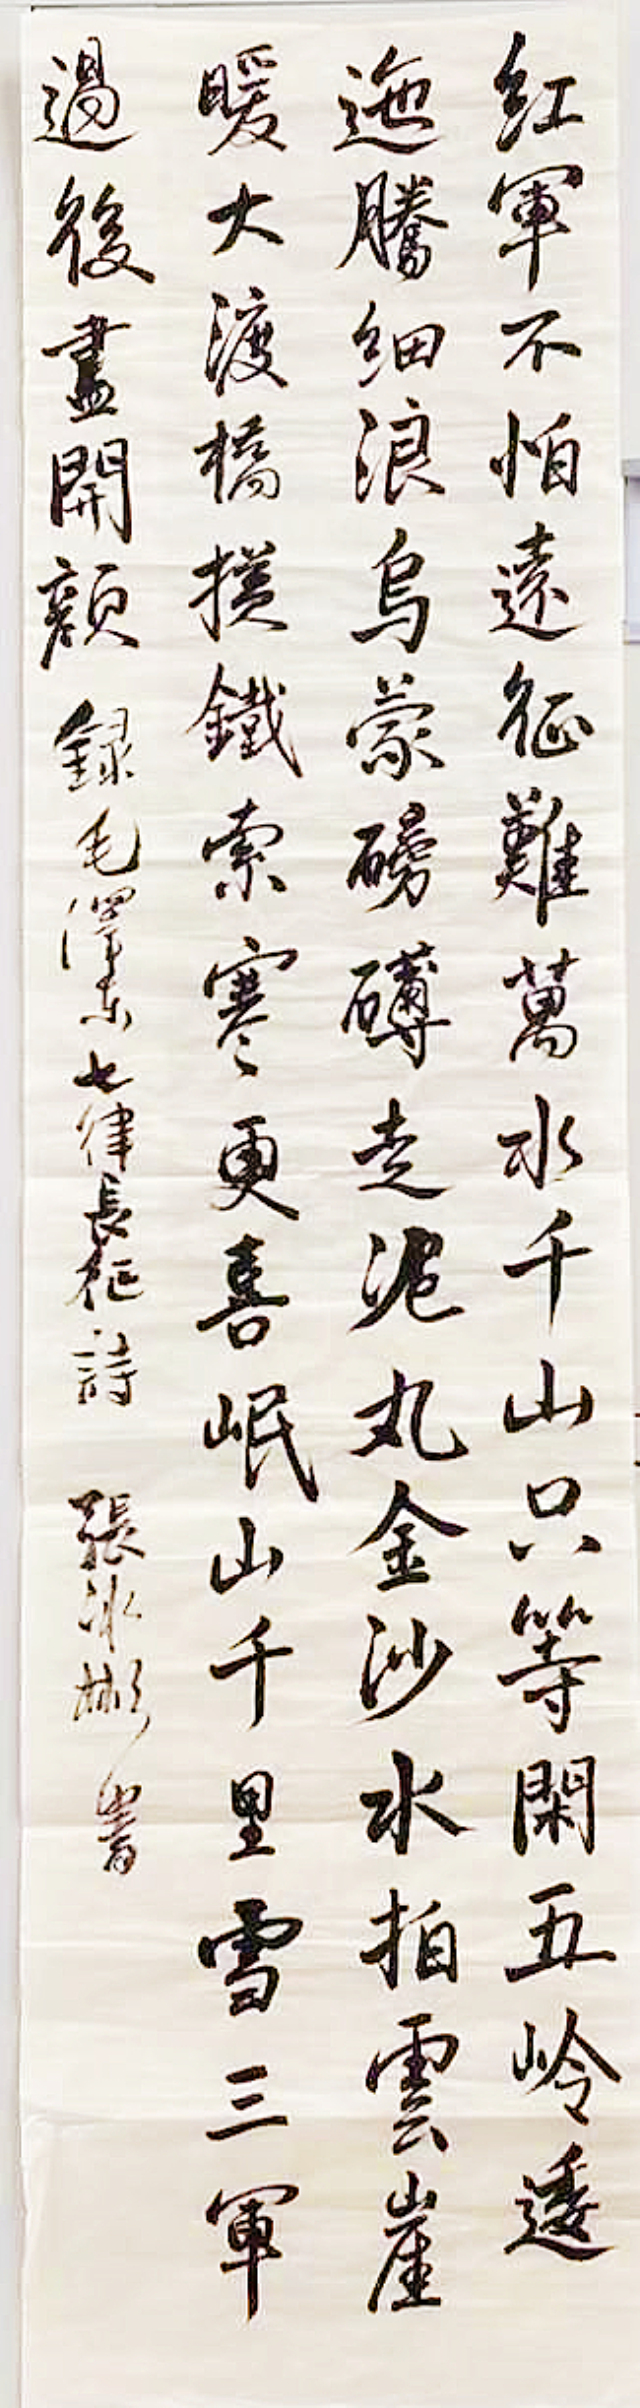 紅軍不怕遠征難萬水千山只等閑五岭逶
迤騰細浪烏蒙磅礴走泥丸金沙水拍雲崖
暖大渡橋横鐵索寒更喜岷山千里雪三軍
過後盡開顏 録毛澤东七律長征詩 張冰彬書